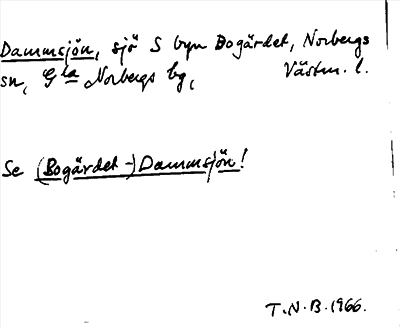 Dammsjön, sjö S byn Bogärdet, Norbergs
sn, Gla Norbergs bg, Västm. l.
Se (Bogärdet-)Dammsjön!
T.N.B. 1966.